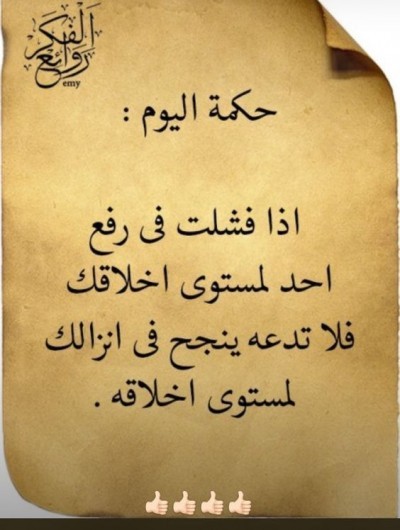 روائع الفكر
emy
حكمة اليوم :
اذا فشلت فى رفع
احد لمستوى اخلاقك
فلا تدعه ينجح فى انزالك
لمستوى اخلاقه .
👍🏻👍🏻👍🏻👍🏻